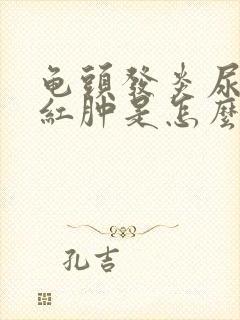 龟頭發炎尿
紅肿是怎麼
孔吉